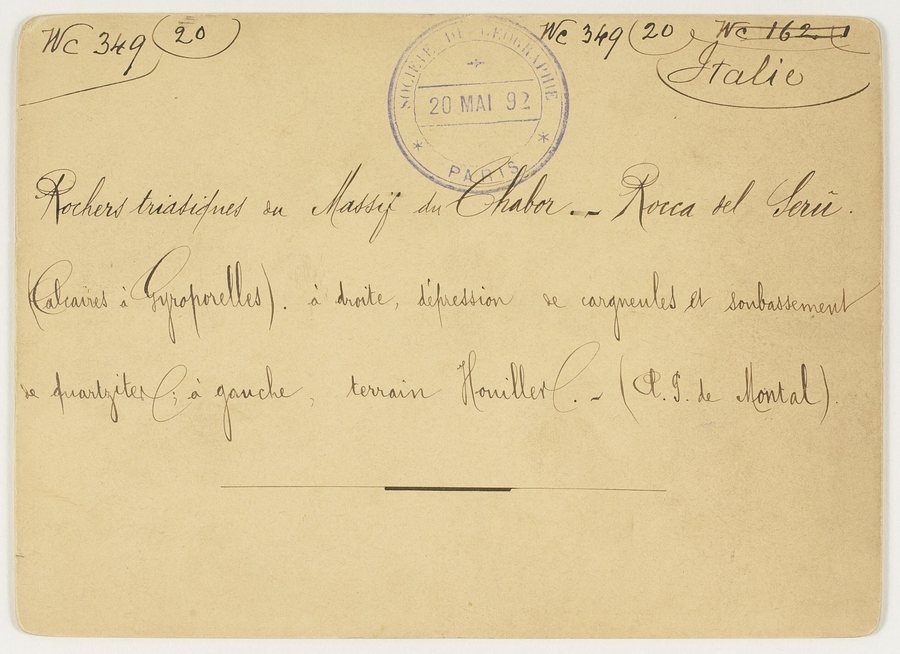 Wc 349 (20)
Wc 349 (20) Wc 162. 1
Italie
SOCIÉTÉ DE GÉOGRAPHIE
20 MAI 92
* PARIS *
Rochers triasiques du Massif du Chabor. - Rocca del Serù.
(Calcaires à Gyroporelles). à droite, dépression de cargneules et soubassement
de quartzites; à gauche, terrain Houiller. - (P. T. de Montal).